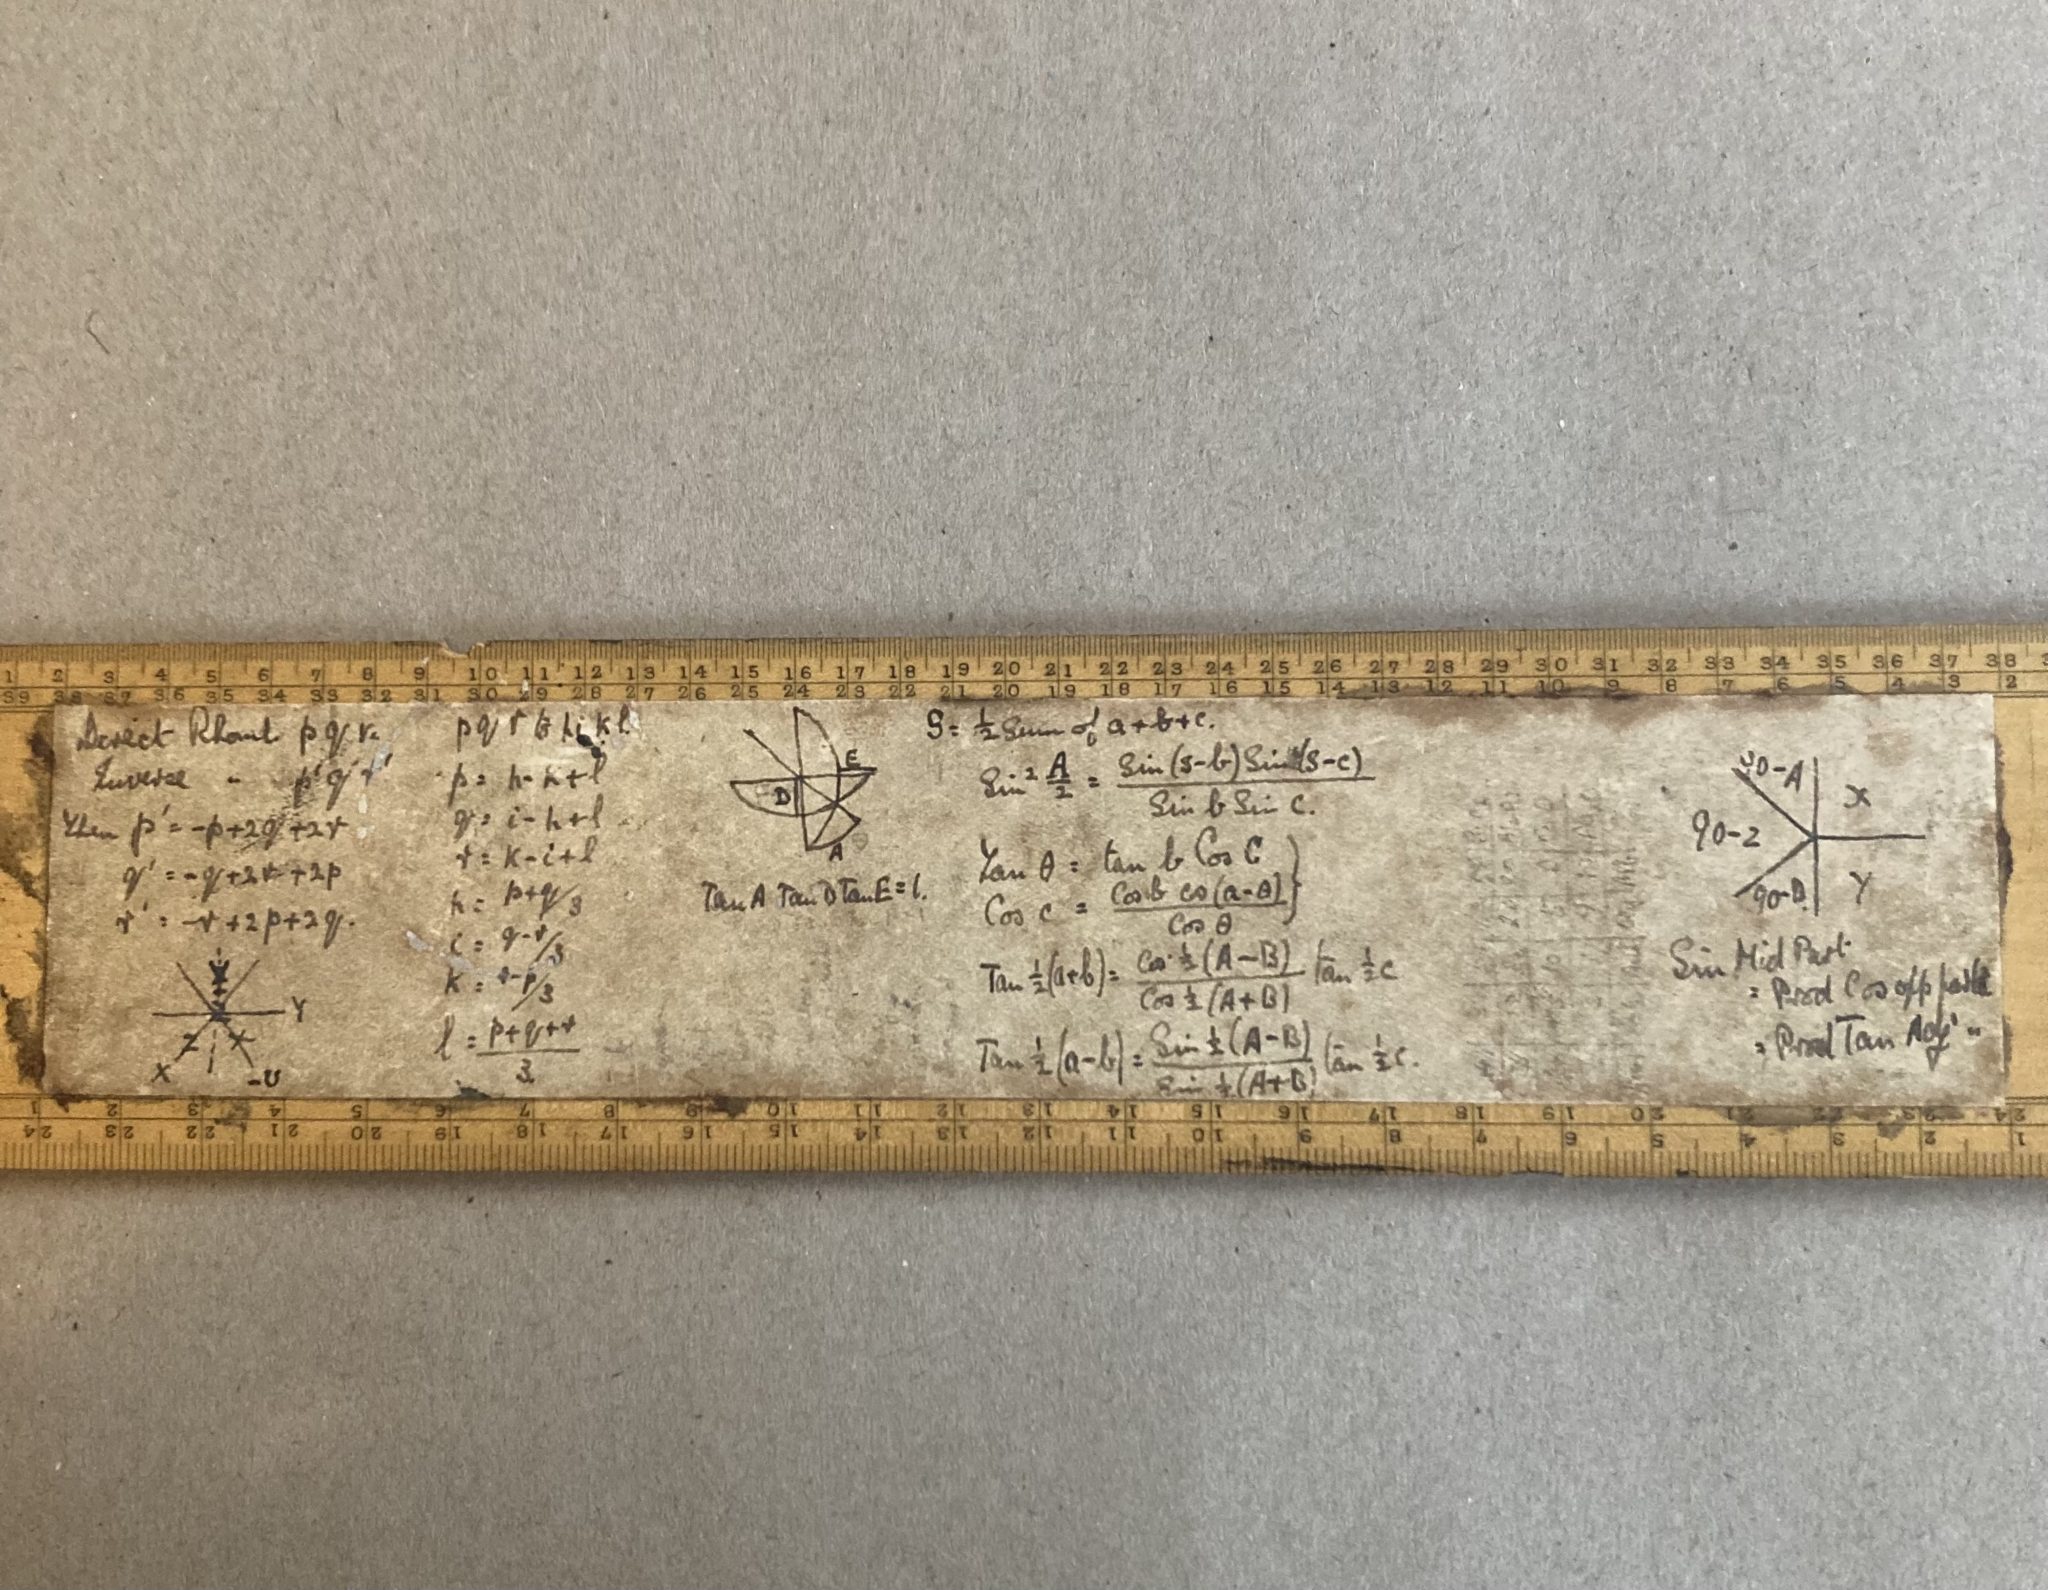 1 2 3 4 5 6 7 8 9 10 11 12 13 14 15 16 17 18 19 20 21 22 23 24 25 26 27 28 29 30 31 32 33 34 35 36 37 38
39 38 37 36 35 34 33 32 31 30 29 28 27 26 25 24 23 22 21 20 19 18 17 16 15 14 13 12 11 10 9 8 7 6 5 4 3 2
Direct Rhomb p q r.
Inverse " p' q' r'
Then p' = -p+2q+2r
q' = -q+2r+2p
r' = -r+2p+2q.
Y
X
-U
p q r h i k l
p = h-k+l
q = i-h+l
r = k-i+l
h = p+q/3
i = q-r/3
k = r-p/3
l = p+q+r/3
E
D
A
Tan A Tan D Tan E = 1.
S = ½ Sum of a+b+c.
Sin² A/2 = Sin(s-b) Sin(s-c) / Sin b Sin c.
Tan θ = tan b Cos C
Cos c = Cos b cos(a-θ) / Cos θ
Tan ½(a+b) = Cos ½(A-B) / Cos ½(A+B) tan ½c
Tan ½(a-b) = Sin ½(A-B) / Sin ½(A+B) tan ½c.
90-A
X
90-Z
90-B
Y
Sin Mid Part
= Prod Cos opp parts
= Prod Tan Adj "
1 2 3 4 5 6 7 8 9 10 11 12 13 14 15 16 17 18 19 20 21 22 23 24
24 23 22 21 20 19 18 17 16 15 14 13 12 11 10 9 8 7 6 5 4 3 2 1